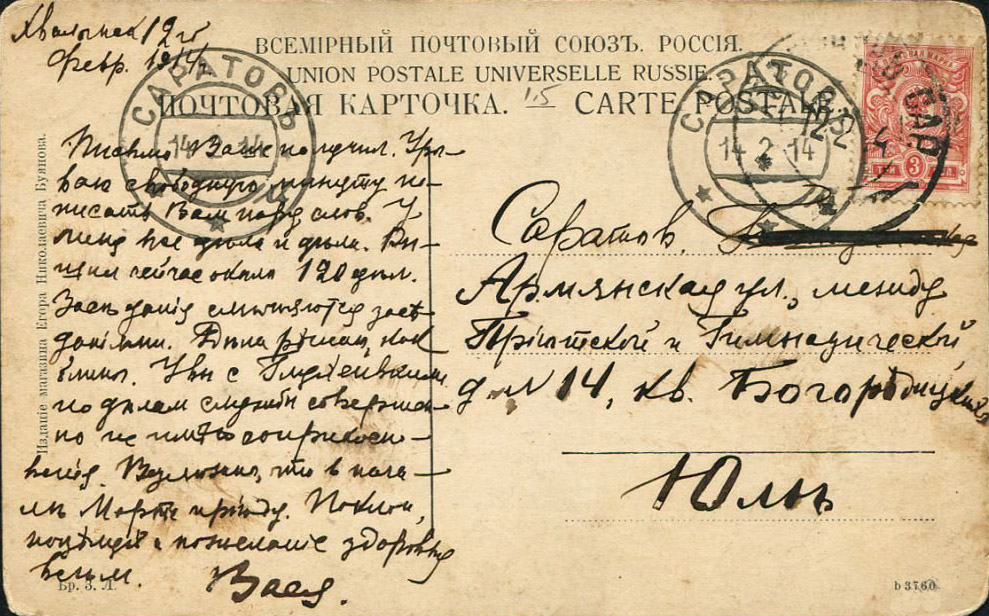 Хвалынск 12го
Февр. 1914 г.
ВСЕМІРНЫЙ ПОЧТОВЫЙ СОЮЗЪ. РОССІЯ.
UNION POSTALE UNIVERSELLE RUSSIE.
ПОЧТОВАЯ КАРТОЧКА. 15 CARTE POSTALE
САРАТОВЪ
14 2 14
САРАТОВЪ
14 2 14
3
Изданіе магазина Егора Николаевича Буянова.
Письмо Ваше получил. Уры-
ваю свободную минуту на-
писать Вам пару слов. У
меня все дѣла и дѣла. Рѣ-
шил сейчас около 120 дѣл.
Засѣданія смѣняются засѣ-
даніями. Дѣла рѣшаю, как
блины. Увы с
по дѣлам службы совершен-
но не имѣю соприкосно-
венія. Возможно, что в нача-
лѣ Марта пріѣду. Поклон,
поцѣлуй и пожеланіе здоровья
всѣм. Вася.
Саратов,
Армянская ул., между
Пріютской и Гимназической,
д № 14, кв. Богородицких
Юлѣ
Бр. З. Л.
b 3760